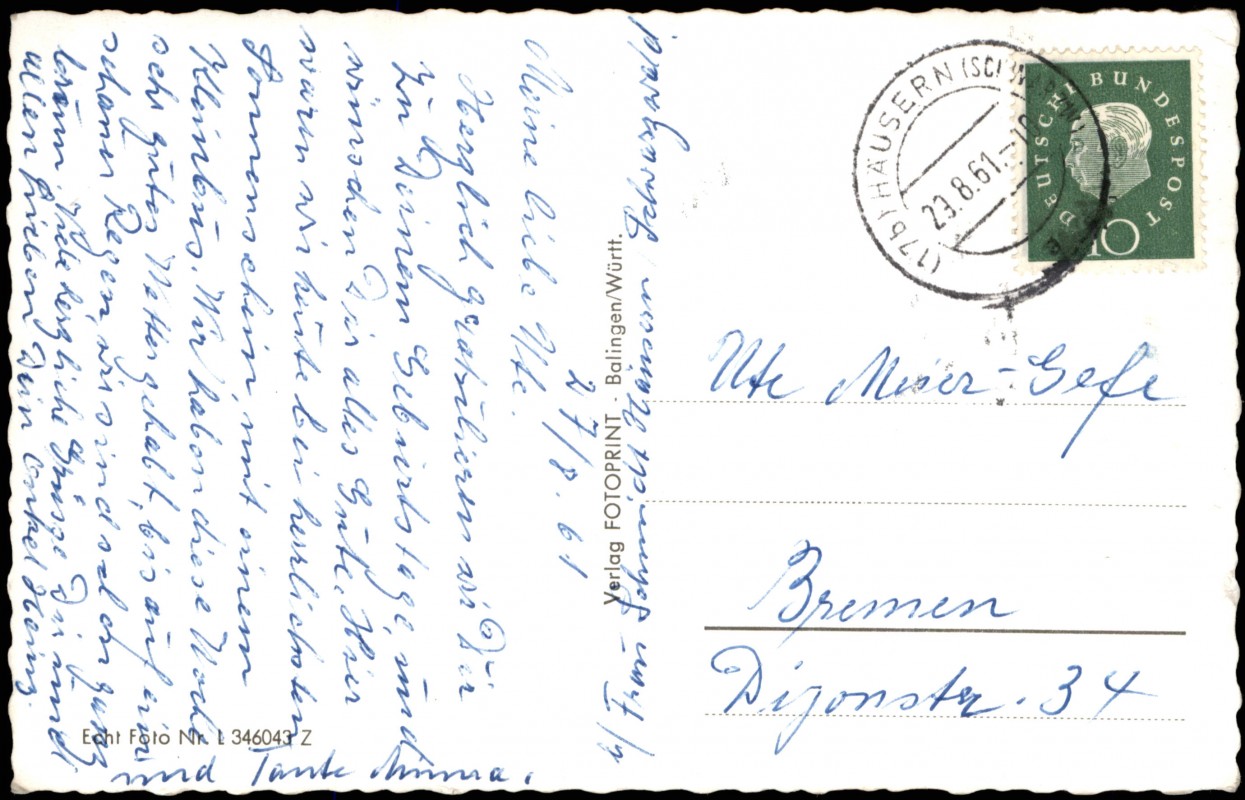 27/8. 61
Meine liebe Ute.
Herzlich gratulieren wir Dir
zu Deinem Geburtstage, und
wünschen Dir alles Gute. Hier
waren wir heute bei herrlichsten
Sonnenschein, mit einem
Kleinbus. Wir haben diese Woche
sehr gutes Wetter gehabt, bis auf ein
schauer Regen, wir sind schon ganz
braun. Viele herzliche Grüsse Dir und
allen Lieben Dein Onkel Heinz
und Tante Minna.
b/ Frau Schmidt Häusern / Schwarzwald
Verlag FOTOPRINT - Balingen/Württ.
Echt Foto Nr. L 346043 Z
(17b) HÄUSERN (SCHWARZW)
29.8.61.-10
DEUTSCHE BUNDESPOST
10
Ute Meier-Gefe
Bremen
Dijonstr. 34